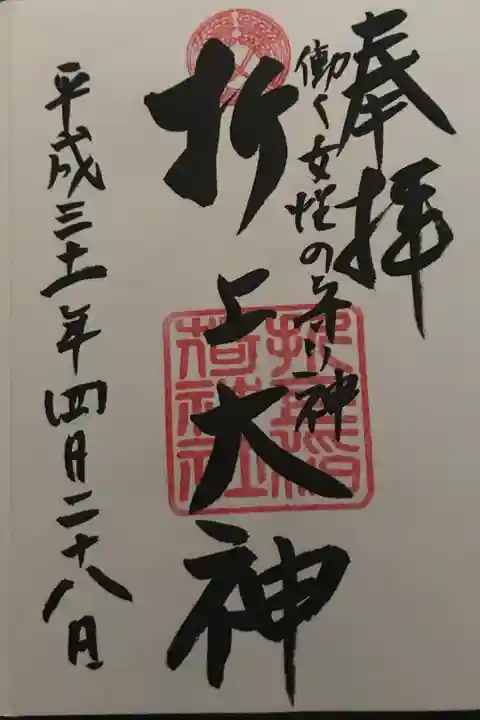 奉拝
働く女性の守り神
折上大神
折上稲
荷神社
平成三十一年四月二十八日